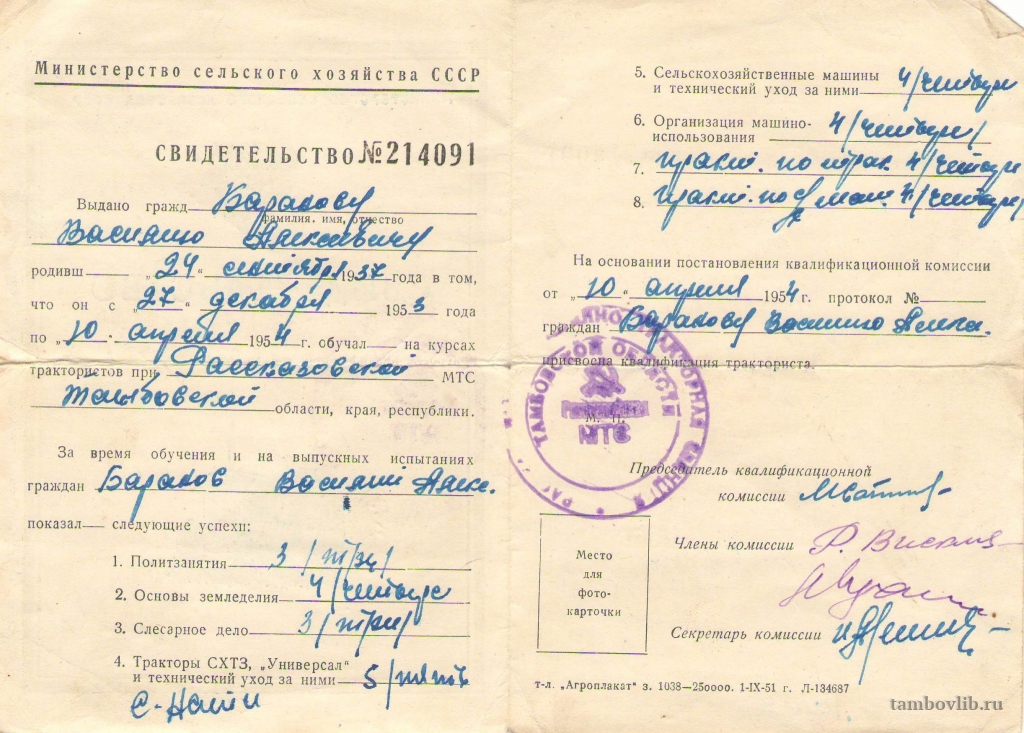 Министерство сельского хозяйства СССР
СВИДЕТЕЛЬСТВО № 214091
Выдано гражд Баракову
фамилия, имя, отчество
Василию Алексеевичу
родивш „24“ сентября 1937 года в том,
что он с „27“ декабря 1953 года
по „10“ апреля 1954 г. обучал на курсах
трактористов при Рассказовской МТС
Тамбовской области, края, республики.
За время обучения и на выпускных испытаниях
граждан Бараков Василий Алек.
показал следующие успехи:
1. Политзанятия 3/три/
2. Основы земледелия 4/четыре
3. Слесарное дело 3/три/
4. Тракторы СХТЗ, „Универсал“
и технический уход за ними 5/пять
С-Нати
5. Сельскохозяйственные машины
и технический уход за ними 4/четыре
6. Организация машино-
использования 4/четыре/
7. практ. по трак. 4/четыре
8. практ. по с/х маш. 4/четыре/
На основании постановления квалификационной комиссии
от „10“ апреля 1954 г. протокол №
граждан Баракову Василию Алекс.
присвоена квалификация тракториста.
ТАМБОВСКОЙ ОБЛАСТИ
МТС
М. П.
Председатель квалификационной
комиссии
Члены комиссии
Секретарь комиссии
Место
для
фото-
карточки
т-л. „Агроплакат“ з. 1038—250000. 1-IX-51 г. Л-134687
tambovlib.ru